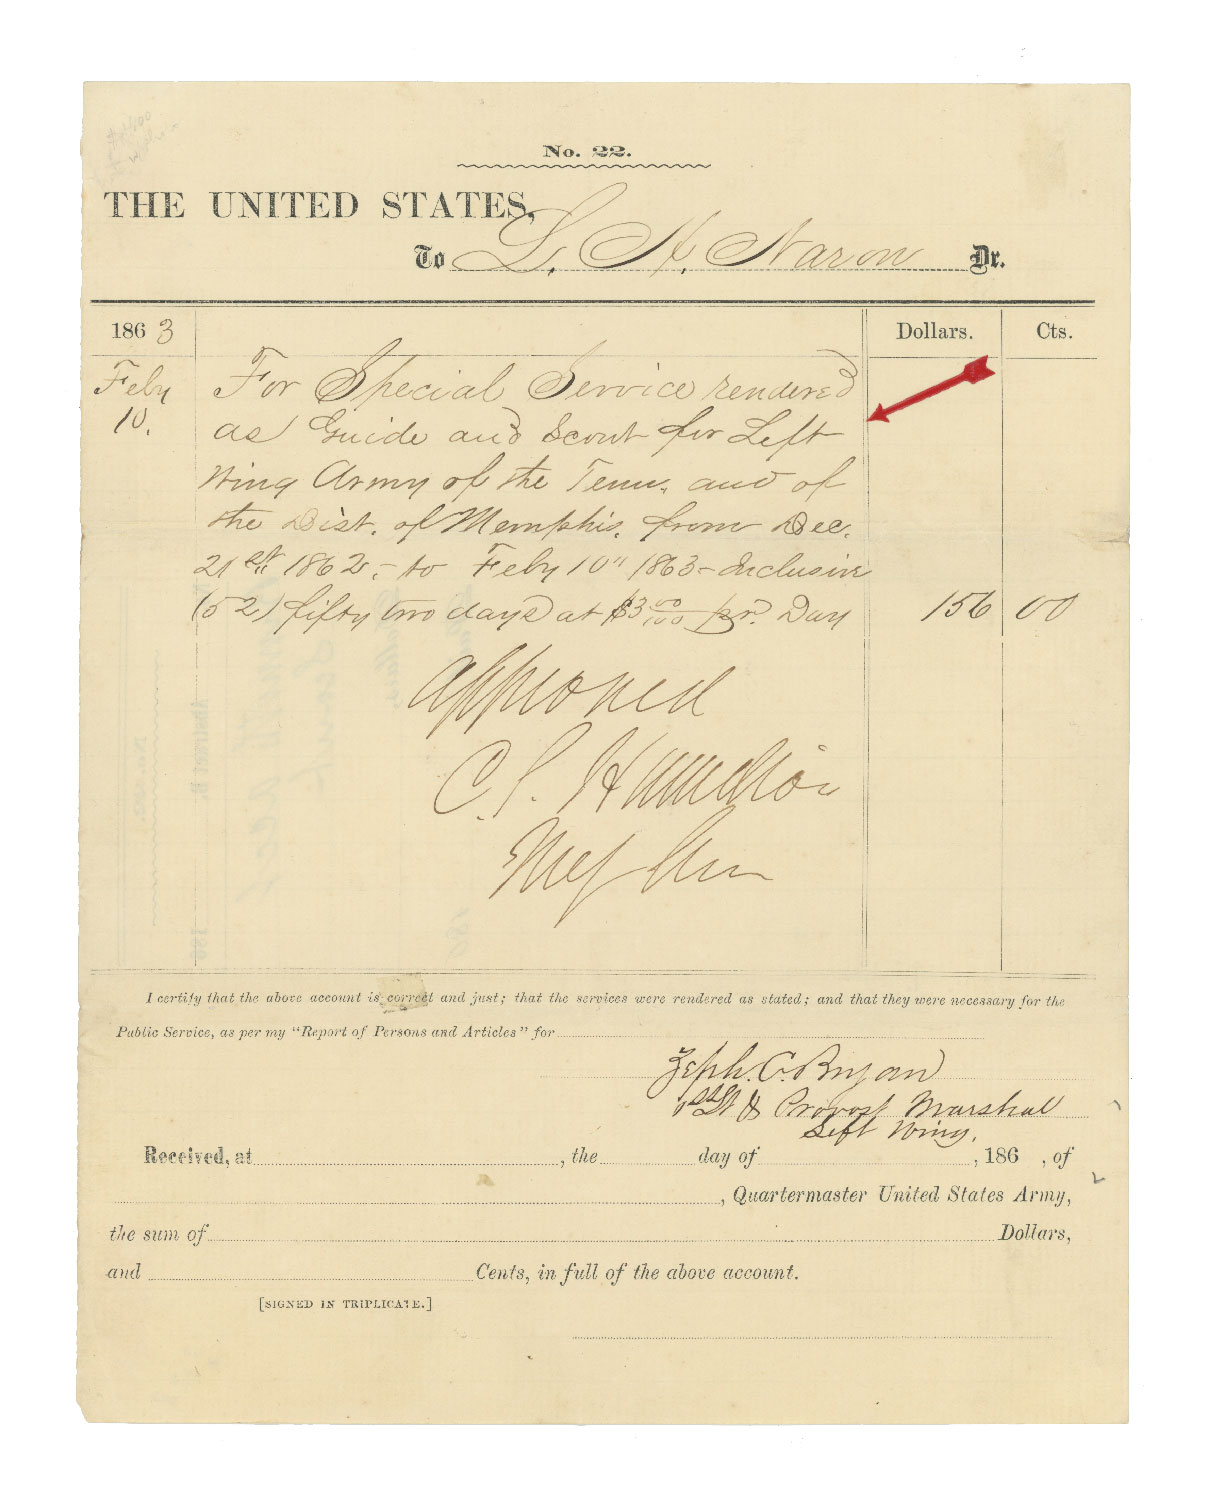 No. 22.
THE UNITED STATES,
To L. H. Naron Dr.
1863 Dollars. Cts.
Feby 10. For Special Service rendered
as Guide and Scout for Left
Wing Army of the Tenn. and of
the Dist. of Memphis. from Dec.
21st 1862,- to Feby 10" 1863- Inclusive
(52) fifty two days at $3 00/100 pr. Day 156 00
Approved
C. S. Hamilton
Maj Gen
I certify that the above account is correct and just; that the services were rendered as stated; and that they were necessary for the
Public Service, as per my "Report of Persons and Articles" for
Zeph. C. Bryan
1st Lt & Provost Marshal
Left Wing.
Received, at , the day of , 186 , of
, Quartermaster United States Army,
the sum of Dollars,
and Cents, in full of the above account.
[SIGNED IN TRIPLICATE.]